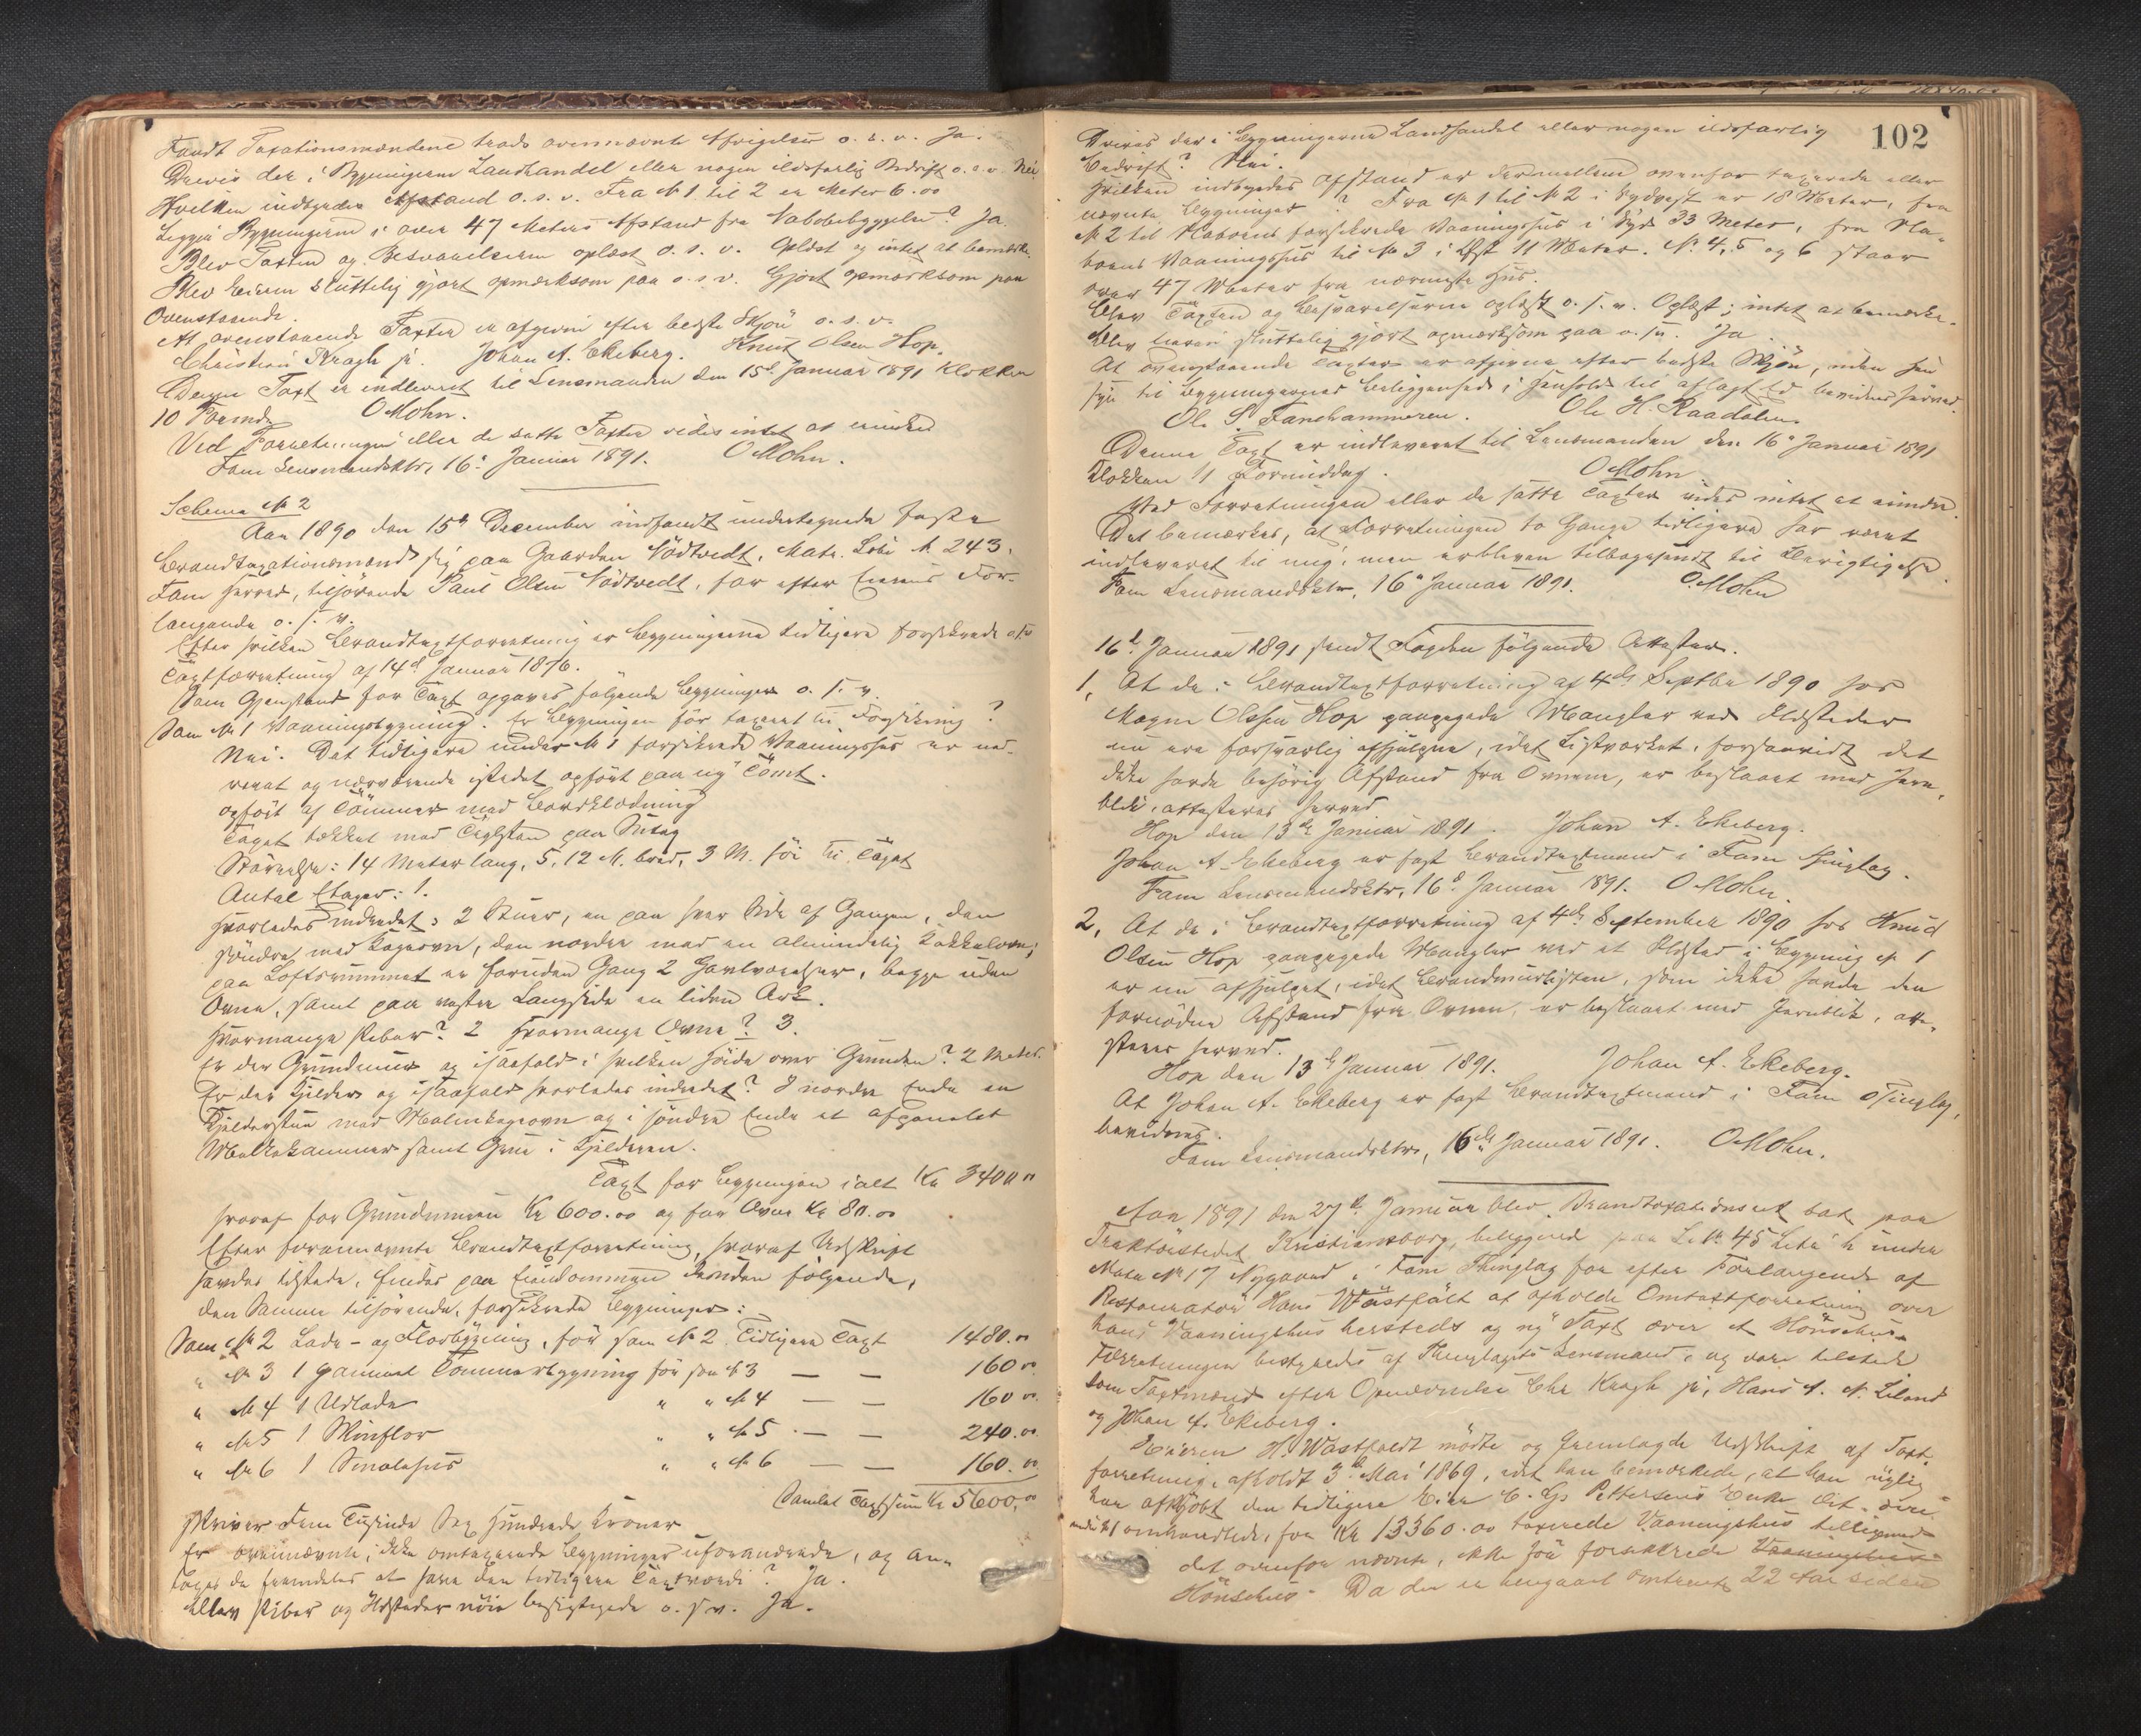 Fandt Taxationsmændene trods ovennævnte Afvigelser o. s. v. Ja.
Drives der i Bygningerne Landhandel eller nogen ildsfarlig Bedrift o. s. v. Nei.
Hvilken indbyrdes Afstand o. s. v. Fra № 1 til 2 er Meter 6.00
Ligger Bygningerne i over 47 Meters Afstand fra Nabobebyggelse? Ja.
Blev Taxten og Besvarelserne oplæst o. s. v. Oplæst og intet at bemærke.
Blev Eieren sluttelig gjort opmærksom paa o. s. v. Gjort opmærksom paa
Ovenstaaende.
At ovenstaaende Taxter er afgivne efter bedste Skjøn o. s. v.
Christian Kragh jr. Johan A. Ekeberg. Knut Olsen Hop.
Denne Taxt er indleveret til Lensmanden den 15de Januar 1891 Klokken
10 Formd. O Mohn.
Ved Forretningen eller de satte Taxter vides intet at erindre
Fane Lensmandsktr, 16. Januar 1891. O Mohn.
Schema № 2
Aar 1890 den 15de December indfandt undertegnede faste
Brandtaxationsmænd sig paa Gaarden Nödtvedt, Matr. Löbe № 243,
Fane Herred, tilhörende Paul Olsen Nödtvedt, for efter Eierens For-
langende o. s. v.
Efter hvilken Brandtaxtforretning er Bygningerne tidligere forsikrede o. s. v.
Taxtforretning af 14de Januar 1876.
Som Gjenstand for Taxt opgaves følgende Bygninger o. s. v.
Som № 1 Vaaningsbygning. Er Bygningen før taxeret til Forsikring?
Nei. Det tidligere under № 1 forsikrede Vaaningshus er ned-
revet og nærværende istedet opfört paa ny Tömt.
opfört af Tömmer med Bordklædning
Taget tækket med Taglsten paa Sutag
Störrelse: 14 Meter lang, 5,12 M. bred, 3 M. höi til Taget
Antal Etager: 1.
Hvorledes indredet: 2 Stuer, en paa hver Side af Gangen, den
söndre med Kogeovn, den nordre med en almindelig Kakkelovn;
paa Loftsrummet er foruden Gang 2 Gavlværelser, begge uden
Ovne, samt paa vestre Langside en liden Ark.
Hvormange Piber? 2 Hvormange Ovne? 3.
Er der Grundmur og isaafald i hvilken Höide over Grunden? 2 Meter.
Er der Kjelder og isaafald hvorledes indredet? I nordre Ende en
Kjelderstue med Kogeovn og i söndre Ende et afpanelet
Melkekammer samt Grue i Kjelderen.
Taxt for Bygningen ialt Kr 3400 00
hvoraf for Grundmuren Kr 600.00 og for Ovne Kr 80.00
Efter forannævnte Brandtaxtforretning, hvoraf Udskrift
havdes tilstede, findes paa Eiendommen desuden følgende,
den Samme tilhörende, forsikrede Bygninger:
Som № 2 Lade- og Florbygning, för som № 2 Tidligere Taxt 1480.00
„ № 3 1 gammel Tömmerbygning för som № 3 — — 160 00
„ № 4 1 Udlade „ „ № 4 — — 160 00
„ № 5 1 Vinflor „ „ № 5 — — 240.00
„ № 6 1 Smalehus „ „ № 6 — — 160.00
Samlet Taxtsum Kr 5600,00
skriver Fem Tusinde Sex Hundrede Kroner
Er ovennævnte, ikke omtaxerede Bygninger uforandrede, og an-
tages de fremdeles at have den tidligere Taxtværdi? Ja.
Blev Piber og Ildsteder nöie besigtigede o. s. v. Ja.
102
Drives der i Bygningerne Landhandel eller nogen ildsfarlig
Bedrift? Nei.
Hvilken indbyrdes Afstand er der mellem ovenfor taxerede eller
nævnte Bygninger? Fra № 1 til № 2 i Sydvest er 18 Meter, fra
№ 2 til Naboens forsikrede Vaaningshus i Syd 33 Meter, fra Na-
boens Vaaningshus til № 3 i Öst 11 Meter. № 4, 5 og 6 staar
over 47 Meter fra nærmeste Hus.
Blev Taxten og Besvarelserne oplæst o. s. v. Oplæst; intet at bemærke.
Blev Eieren sluttelig gjort opmærksom paa o. s. v. Ja.
At ovenstaaende Taxter er afgivne efter bedste Skjön, uden Hen-
syn til Bygningernes Beliggenhed, i Henhold til aflagt Ed bevidnes herved.
Ol. S. Fanehammeren. Ole H. Raadalen.
Denne Taxt er indleveret til Lensmanden den 16de Januar 1891
Klokken 11 Formiddag. O Mohn
Ved Forretningen eller de satte Taxter vides intet at erindre.
Det bemærkes, at Forretningen to Gange tidligere har været
indleveret til mig, men er bleven tilbagesendt til Berigtigelse.
Fane Lensmandsktr, 16de Januar 1891. O. Mohn
16de Januar 1891 sendt Fogden følgende Attester.
1, At de i Brandtaxtforretning af 4de Septbr 1890 hos
Magne Olssen Hop paapegede Mangler ved Ildsteder
nu ere forsvarlig afhjulpne, idet Listværket, forsaavidt det
ikke havde behörig Afstand fra Ovnene, er beslaaet med Jern-
blik, attesteres herved
Hop den 13de Januar 1891. Johan A. Ekeberg.
Johan A. Ekeberg er fast Brandtaxtmand i Fane Thinglag.
Fane Lensmandsktr, 16de Januar 1891. O Mohn.
2, At de i Brandtaxtforretning af 4de September 1890 hos Knud
Olsen Hop paapegede Mangler ved et Ildsted i Bygning № 1
er nu afhjulpet, idet Brandmurlisten, som ikke havde den
fornödne Afstand fra Ovnen, er beslaaet med Jernblik, atte-
steres herved.
Hop den 13de Januar 1891. Johan A. Ekeberg.
At Johan A. Ekeberg er fast Brandtaxtmand i Fane Thinglag,
bevidnes.
Fane Lensmandsktr, 16de Januar 1891. O Mohn.
Aar 1891 den 27de Januar blev Brandtaxationsret sat paa
Traktörstedet Kristiansborg, beliggende paa L. № 45 Litr h under
Matr № 17 Nygaard i Fane Thinglag for efter Forlangende af
Restauratør Hans Wästfält at afholde Omtaxtforretning over
hans Vaaningshus hersteds og ny Taxt over et Hönsehus.
Forretningen bestyredes af Thinglagets Lensmand, og vare tilstede
som Taxtmænd efter Opnævnelse Chr Kragh jr, Hans A. N. Liland
og Johan A. Ekeberg.
Eieren H. Wästfeldt mödte og fremlagde Udskrift af Taxt-
forretning, afholdt 3de Mai 1869, idet han bemærkede, at han nylig
har afkjöbt den tidligere Eier C. Gs Pettersens Enke det deri
under № 1 omhandlede, for Kr 13360.00 taxerede Vaaningshus tilligemed
det ovenfor nævnte, ikke för forsikrede Vaaningshus
Hönsehus. Da der er hengaaet omtrent 22 Aar siden